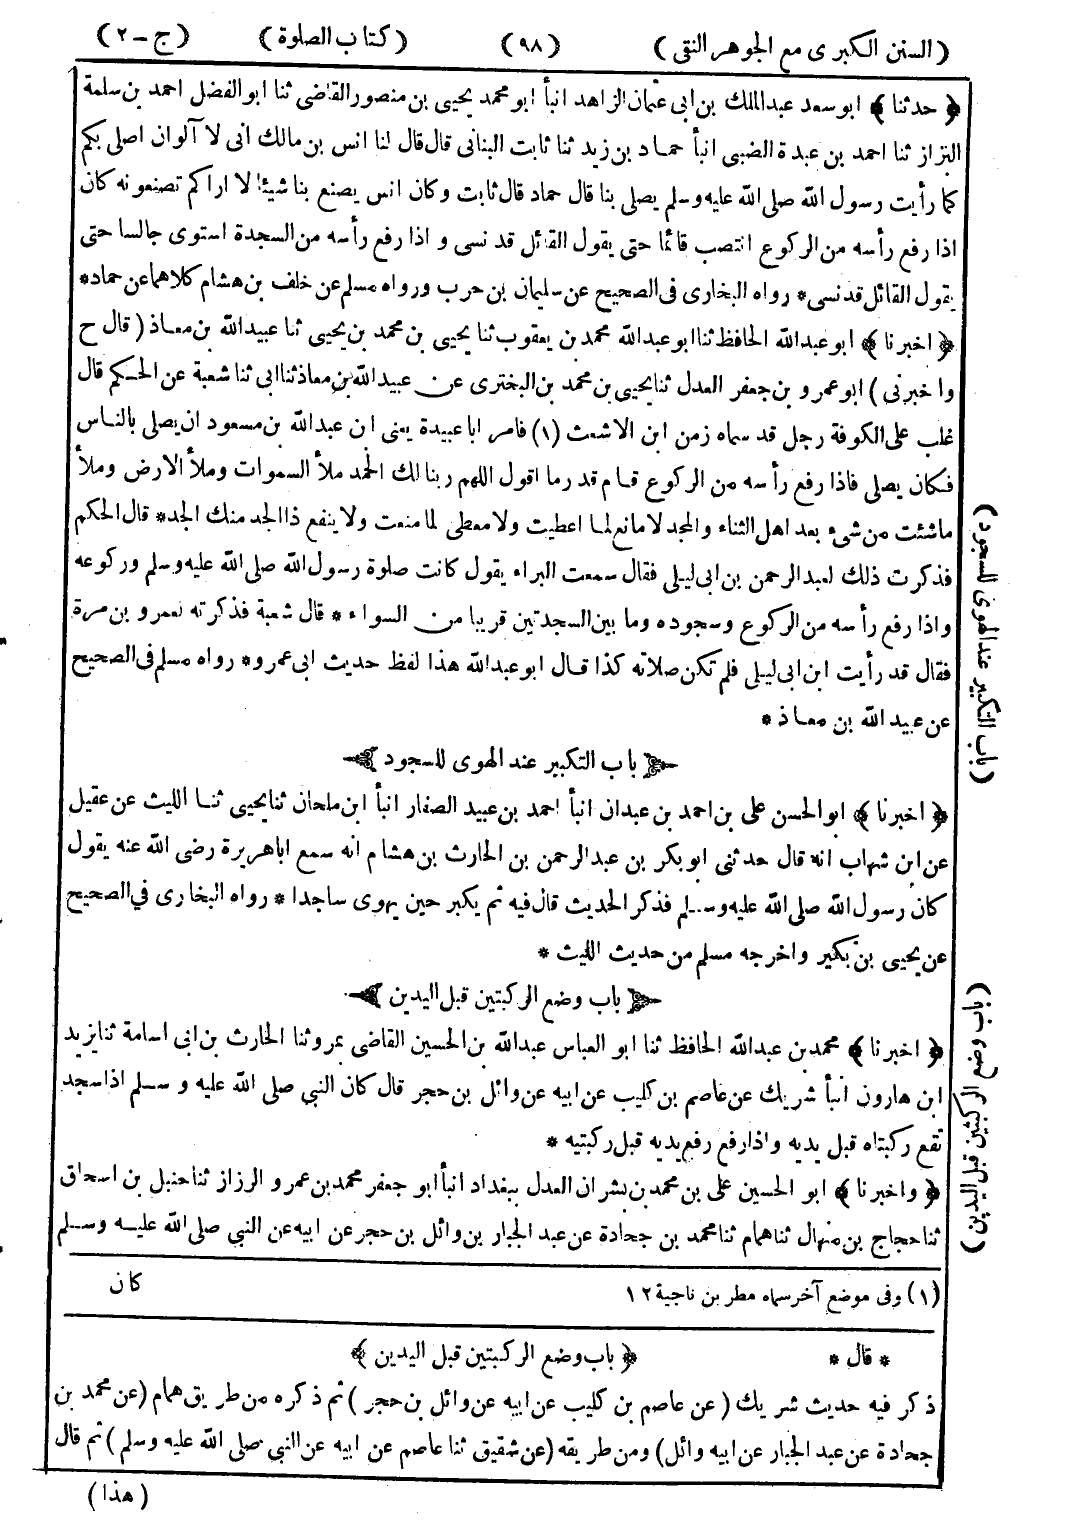 (السنن الكبرى مع الجوهر النقى) (٩٨) (كتاب الصلوة) (ج-٢)
﴿ حدثنا ﴾ ابو سعد عبد الملك بن ابى عثمان الزاهد انبأ ابو محمد يحيى بن منصور القاضى ثنا ابو الفضل احمد بن سلمة
البزاز ثنا احمد بن عبدة الضبى انبأ حماد بن زيد ثنا ثابت البنانى قال قال لنا انس بن مالك انى لا آلوان اصلى بكم
كما رأيت رسول الله صلى الله عليه وسلم يصلى بنا قال حماد قال ثابت وكان انس يصنع بنا شيئا لا اراكم تصنعونه كان
اذا رفع رأسه من الركوع انتصب قائما حتى يقول القائل قد نسى و اذا رفع رأسه من السجدة استوى جالسا حتى
يقول القائل قد نسى * رواه البخارى فى الصحيح عن سليمان بن حرب ورواه مسلم عن خلف بن هشام كلاهما عن حماد *
﴿ اخبرنا ﴾ ابو عبد الله الحافظ ثنا ابو عبد الله محمد بن يعقوب ثنا يحيى بن محمد بن يحيى ثنا عبيد الله بن معاذ ( قال ح
واخبرنى ) ابو عمرو بن جعفر العدل ثنا يحيى بن محمد بن البخترى عن عبيد الله بن معاذ ثنا ابى ثنا شعبة عن الحكم قال
غلب على الكوفة رجل قد سماه زمن ابن الاشعث (١) فامر ابا عبيدة يعنى ابن عبد الله بن مسعود ان يصلى بالناس
فكان يصلى فاذا رفع رأسه من الركوع قام قدر ما اقول اللهم ربنا لك الحمد ملأ السموات وملأ الارض وملأ
ماشئت من شىء بعد اهل الثناء والمجد لا مانع لما اعطيت ولا معطى لما منعت ولا ينفع ذا الجد منك الجد * قال الحكم
فذكرت ذلك لعبد الرحمن بن ابى ليلى فقال سمعت البراء يقول كانت صلوة رسول الله صلى الله عليه وسلم وركوعه
واذا رفع رأسه من الركوع وسجوده وما بين السجدتين قريبا من السواء * قال شعبة فذكرته لعمرو بن مرة
فقال قد رأيت ابن ابى ليلى فلم تكن صلاته كذا قال ابو عبد الله هذا لفظ حديث ابى عمرو * رواه مسلم فى الصحيح
عن عبيد الله بن معاذ *
باب التكبير عند الهوى للسجود
﴿ اخبرنا ﴾ ابو الحسن على بن احمد بن عبدان انبأ احمد بن عبيد الصفار انبأ ابن ملحان ثنا يحيى ثنا الليث عن عقيل
عن ابن شهاب انه قال حدثنى ابو بكر بن عبد الرحمن بن الحارث بن هشام انه سمع ابا هريرة رضى الله عنه يقول
كان رسول الله صلى الله عليه وسلم فذكر الحديث قال فيه ثم يكبر حين يهوى ساجدا * رواه البخارى فى الصحيح
عن يحيى بن بكير واخرجه مسلم من حديث الليث *
باب وضع الركبتين قبل اليدين
﴿ اخبرنا ﴾ محمد بن عبد الله الحافظ ثنا ابو العباس عبد الله بن الحسين القاضى بمرو ثنا الحارث بن ابى اسامة ثنا يزيد
ابن هارون انبأ شريك عن عاصم بن كليب عن ابيه عن وائل بن حجر قال كان النبي صلى الله عليه و سلم اذا سجد
تقع ركبتاه قبل يديه واذا رفع رفع يديه قبل ركبتيه *
﴿ واخبرنا ﴾ ابو الحسين على بن محمد بن بشران العدل ببغداد انبأ ابو جعفر محمد بن عمرو الرزاز ثنا حنبل بن اسحاق
ثنا حجاج بن منهال ثنا همام ثنا محمد بن جحادة عن عبد الجبار بن وائل بن حجر عن ابيه عن النبي صلى الله عليه وسلم
كان
(١) وفى موضع آخر سماه مطر بن ناجية ١٢
* قال * ﴿ باب وضع الركبتين قبل اليدين ﴾
ذكر فيه حديث شريك ( عن عاصم بن كليب عن ابيه عن وائل بن حجر ) ثم ذكره من طريق همام (عن محمد بن
جحادة عن عبد الجبار عن ابيه وائل) ومن طريقه (عن شقيق ثنا عاصم عن ابيه عن النبي صلى الله عليه وسلم ) ثم قال
(هذا)
(باب التكبير عند الهوى للسجود)
(باب وضع الركبتين قبل اليدين)